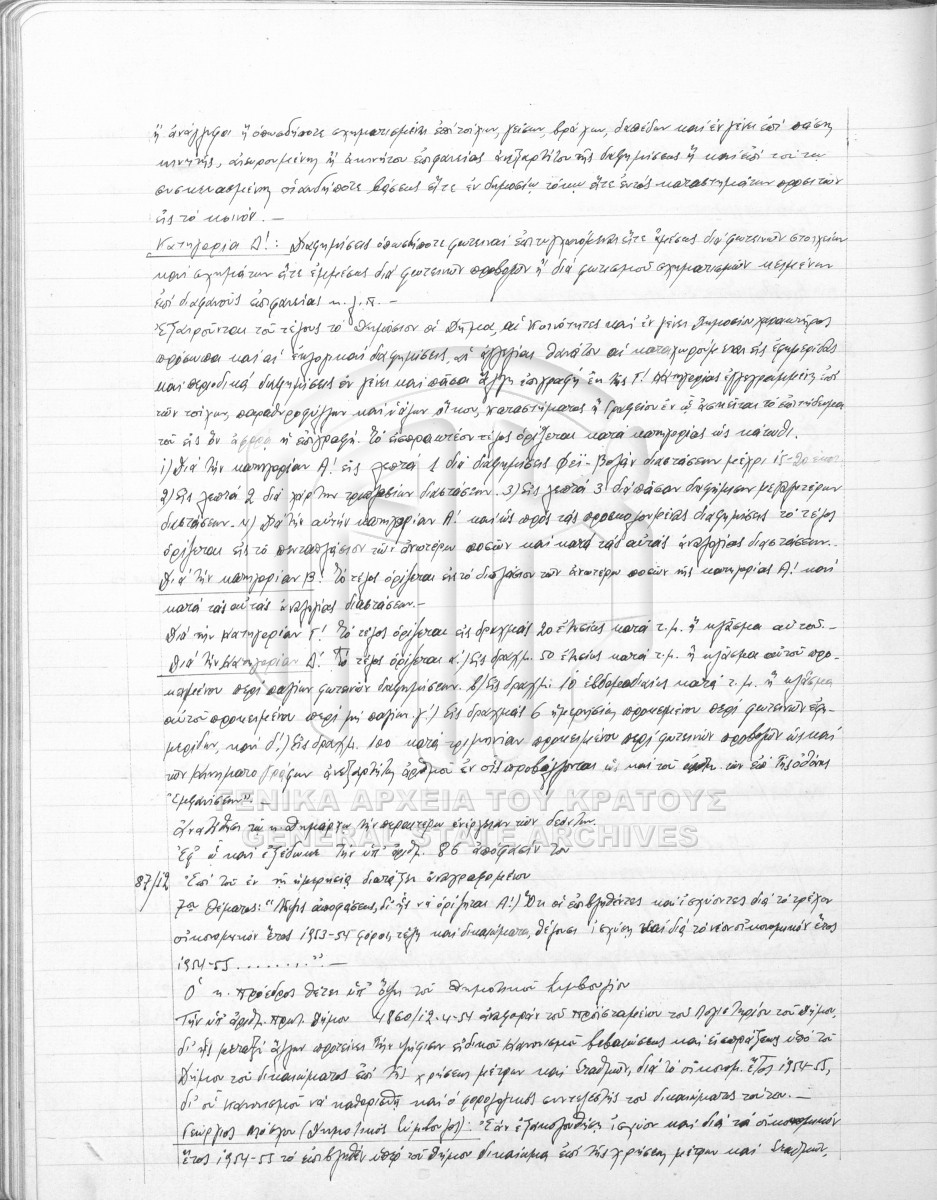 ἢ ἀνάγλυφοι ἢ ὁπωσδήποτε σχηματισμέναι ἐπὶ τοίχων, γείσων, βράχων, δαπέδων καὶ ἐν γένει ἐπὶ πάσης
κινητῆς, αἰωρουμένης ἢ ἀκινήτου ἐπιφανείας ἀνεξαρτήτου τῆς διαφημίσεως ἢ καὶ ἐπὶ
οἱασδήποτε βάσεως εἴτε ἐν δημοσίῳ τόπῳ εἴτε ἐντὸς καταστημάτων προσιτῶν
εἰς τὸ κοινόν. —
Κατηγορία Δ!: Διαφημίσεις ὁπωσδήποτε φωτειναὶ ἐπιτυγχανόμεναι εἴτε ἀμέσως διὰ φωτεινῶν στοιχείων
καὶ σχημάτων εἴτε ἐμμέσως διὰ φωτεινῶν προβολῶν ἢ διὰ φωτισμοῦ σχηματισμῶν κειμένων
ἐπὶ διαφανοῦς ἐπιφανείας κ.λ.π. —
Ἐξαιροῦνται τοῦ τέλους τὸ Δημόσιον οἱ Δῆμοι, αἱ Κοινότητες καὶ ἐν γένει Δημοσίου χαρακτῆρος
πρόσωπα καὶ αἱ ἐκλογικαὶ διαφημίσεις, αἱ ἀγγελίαι θανάτου αἱ καταχωρούμεναι εἰς ἐφημερίδας
καὶ περιοδικὰ διαφημίσεις ἐν γένει καὶ πᾶσα ἄλλη ἐπιγραφὴ ἐκ τῆς Γ! Κατηγορίας ἐγγεγραμμένη ἐπὶ
τῶν τοίχων, παραθυροφύλλων καὶ ὑάλων οἴκου, καταστήματος ἢ Γραφείου ἐν ᾧ ἀσκεῖται τὸ ἐπιτήδευμα
τοῦ εἰς ὃν ἀφορᾷ ἡ ἐπιγραφή. Τὸ εἰσπρακτέον τέλος ὁρίζεται κατὰ κατηγορίας ὡς κάτωθι.
1) Διὰ τὴν κατηγορίαν Α! εἰς λεπτὰ 1 διὰ διαφημίσεις Φέϊ-Βολὰν διαστάσεων μέχρι 15-20 ἑκατ.
2) Εἰς λεπτὰ 2 διὰ χάρτην διαστάσεων. 3) Εἰς λεπτὰ 3 διὰ πᾶσαν διαφήμισιν μεγαλυτέρων
διαστάσεων. 4) Διὰ τὴν αὐτὴν κατηγορίαν Α! καὶ ὡς πρὸς τὰς διαφημίσεις τὸ τέλος
ὁρίζεται εἰς τὸ πενταπλάσιον τῶν ἀνωτέρω ποσῶν καὶ κατὰ τὰς αὐτὰς ἀναλογίας διαστάσεων. —
Διὰ τὴν κατηγορίαν Β! τὸ τέλος ὁρίζεται εἰς τὸ διπλάσιον τῶν ἀνωτέρω ποσῶν τῆς κατηγορίας Α! καὶ
κατὰ τὰς αὐτὰς ἀναλογίας διαστάσεων. —
Διὰ τὴν κατηγορίαν Γ! Τὸ τέλος ὁρίζεται εἰς δραχμὰς 20 ἐτησίως κατὰ τ.μ. ἢ κλάσμα αὐτοῦ. —
Διὰ τὴν κατηγορίαν Δ! Τὸ τέλος ὁρίζεται α!) Εἰς δραχμ. 50 ἐτησίως κατὰ τ.μ. ἢ κλάσμα αὐτοῦ προ-
κειμένου περὶ παγίων φωτεινῶν διαφημίσεων. β) Εἰς δραχμ. 10 ἑβδομαδιαίως κατὰ τ.μ. ἢ κλάσμα
αὐτοῦ προκειμένου περὶ μὴ παγίων. γ!) Εἰς δραχμὰς 6 ἡμερησίως προκειμένου περὶ φωτεινῶν ἐφη-
μερίδων, καὶ δ!) Εἰς δραχμ. 100 κατὰ τριμηνίαν προκειμένου περὶ φωτεινῶν προβολῶν ὡς καὶ
τῶν Κινηματογράφων ἀνεξαρτήτως ἀριθμοῦ ἐν οἷς προβάλλονται ὡς καὶ τοῦ τῶν ἐπὶ τῆς ὀθόνης
"Ἐμφανίσεων". —
Ἀναθέτει τῷ κ. Δημάρχῳ τὴν περαιτέρω ἐνέργειαν τῶν δεόντων.
Ἐφ' ᾧ καὶ ἐξεδόθη ἡ ὑπ' ἀριθ. 86 ἀπόφασίν του
87/12 Ἐπὶ τοῦ ἐν τῇ ἡμερησίᾳ διατάξει ἀναγραφομένου
7ου Θέματος: "Λῆψις ἀποφάσεως, δι' ἧς νὰ ὁρίζηται Α!) Ὅτι οἱ ἐπιβληθέντες καὶ ἰσχύοντες διὰ τὸ τρέχον
οἰκονομικὸν ἔτος 1953-54 φόροι, τέλη καὶ δικαιώματα, θέλουσι ἰσχύσῃ καὶ διὰ τὸ νέον οἰκονομικὸν ἔτος
1954-55 ........." —
Ὁ κ. Πρόεδρος θέτει ὑπ' ὄψη τοῦ Δημοτικοῦ Συμβουλίου
Τὴν ὑπ' ἀριθμ. πρωτ. Δήμου 4860/12-4-54 ἀναφορὰν τοῦ προϊσταμένου τοῦ Λογιστηρίου τοῦ Δήμου,
δι' ἧς μεταξὺ ἄλλων προτείνει τὴν ψήφισιν εἰδικοῦ Κανονισμοῦ βεβαιώσεως καὶ εἰσπράξεως ὑπὸ τοῦ
Δήμου τοῦ δικαιώματος ἐπὶ τῆς χρήσεως μέτρων καὶ σταθμῶν, διὰ τὸ οἰκονομ. ἔτος 1954-55,
δι' οὗ Κανονισμοῦ νὰ καθορισθῇ καὶ ὁ φορολογικὸς συντελεστὴς τοῦ δικαιώματος τούτου. —
Γεώργιος Μόσχου (Δημοτικὸς Σύμβουλος): Ἐὰν ἐξακολουθήσῃ ἰσχύον καὶ διὰ τὸ οἰκονομικὸν
ἔτος 1954-55 τὸ ἐπιβληθὲν ὑπὸ τοῦ Δήμου δικαίωμα ἐπὶ τῆς χρήσεως μέτρων καὶ σταθμῶν,
ΓΕΝΙΚΑ ΑΡΧΕΙΑ ΤΟΥ ΚΡΑΤΟΥΣ
GENERAL STATE ARCHIVES